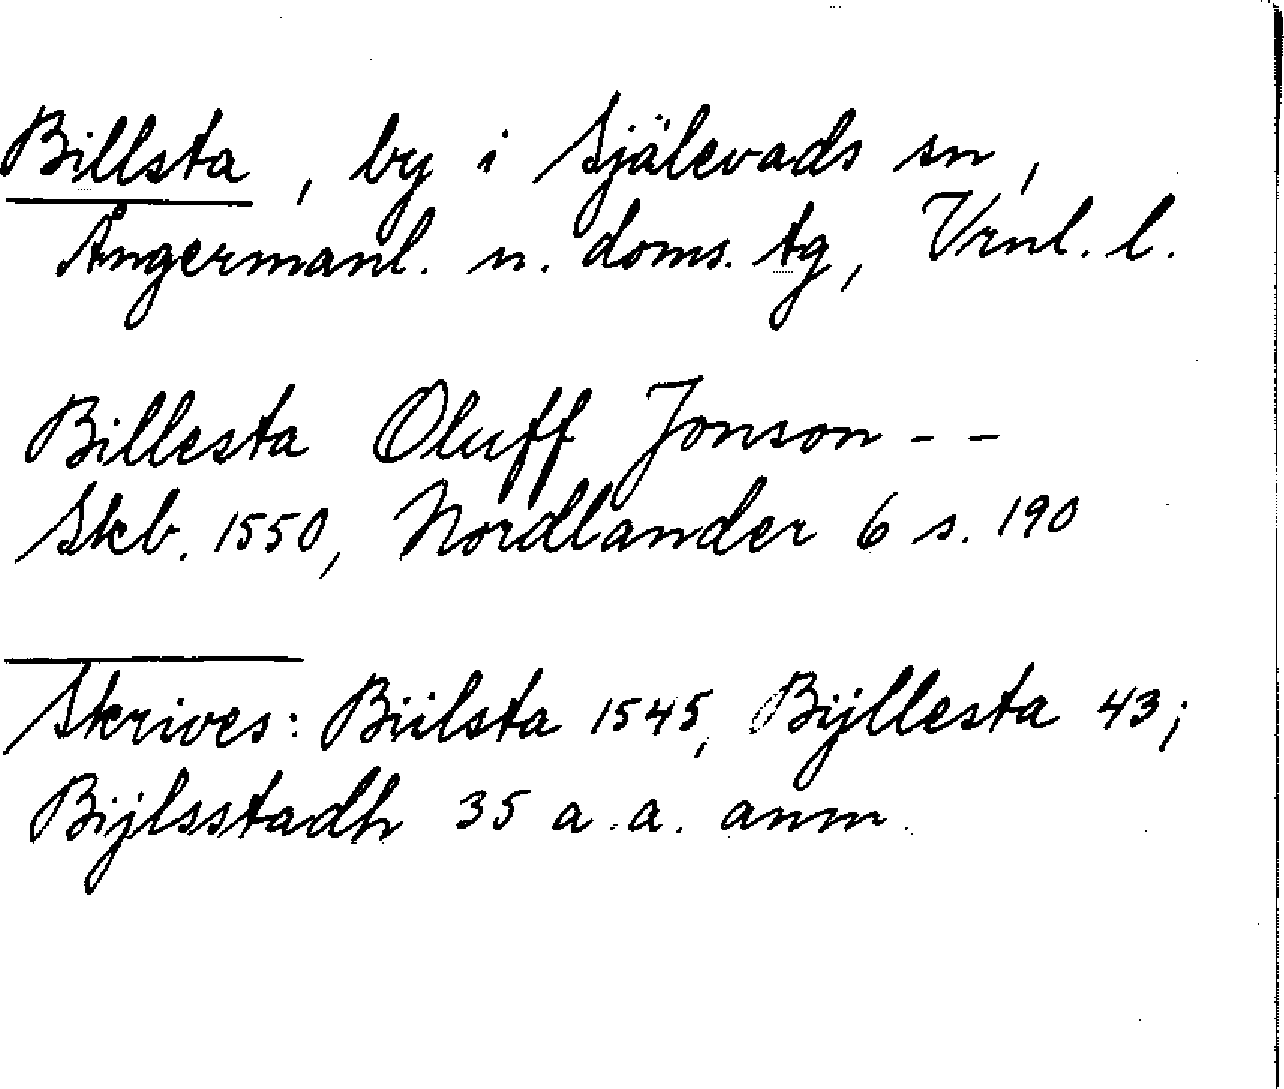 Billsta, by i Själevads sn,
Ångermanl. n. doms. tg, Vrnl. l.
Billesta Oluff Jonson - -
Skb. 1550, Nordlander 6 s. 190
Skrives: Biilsta 1545, Bijllesta 43;
Bijlsstadh 35 a. a. anm.